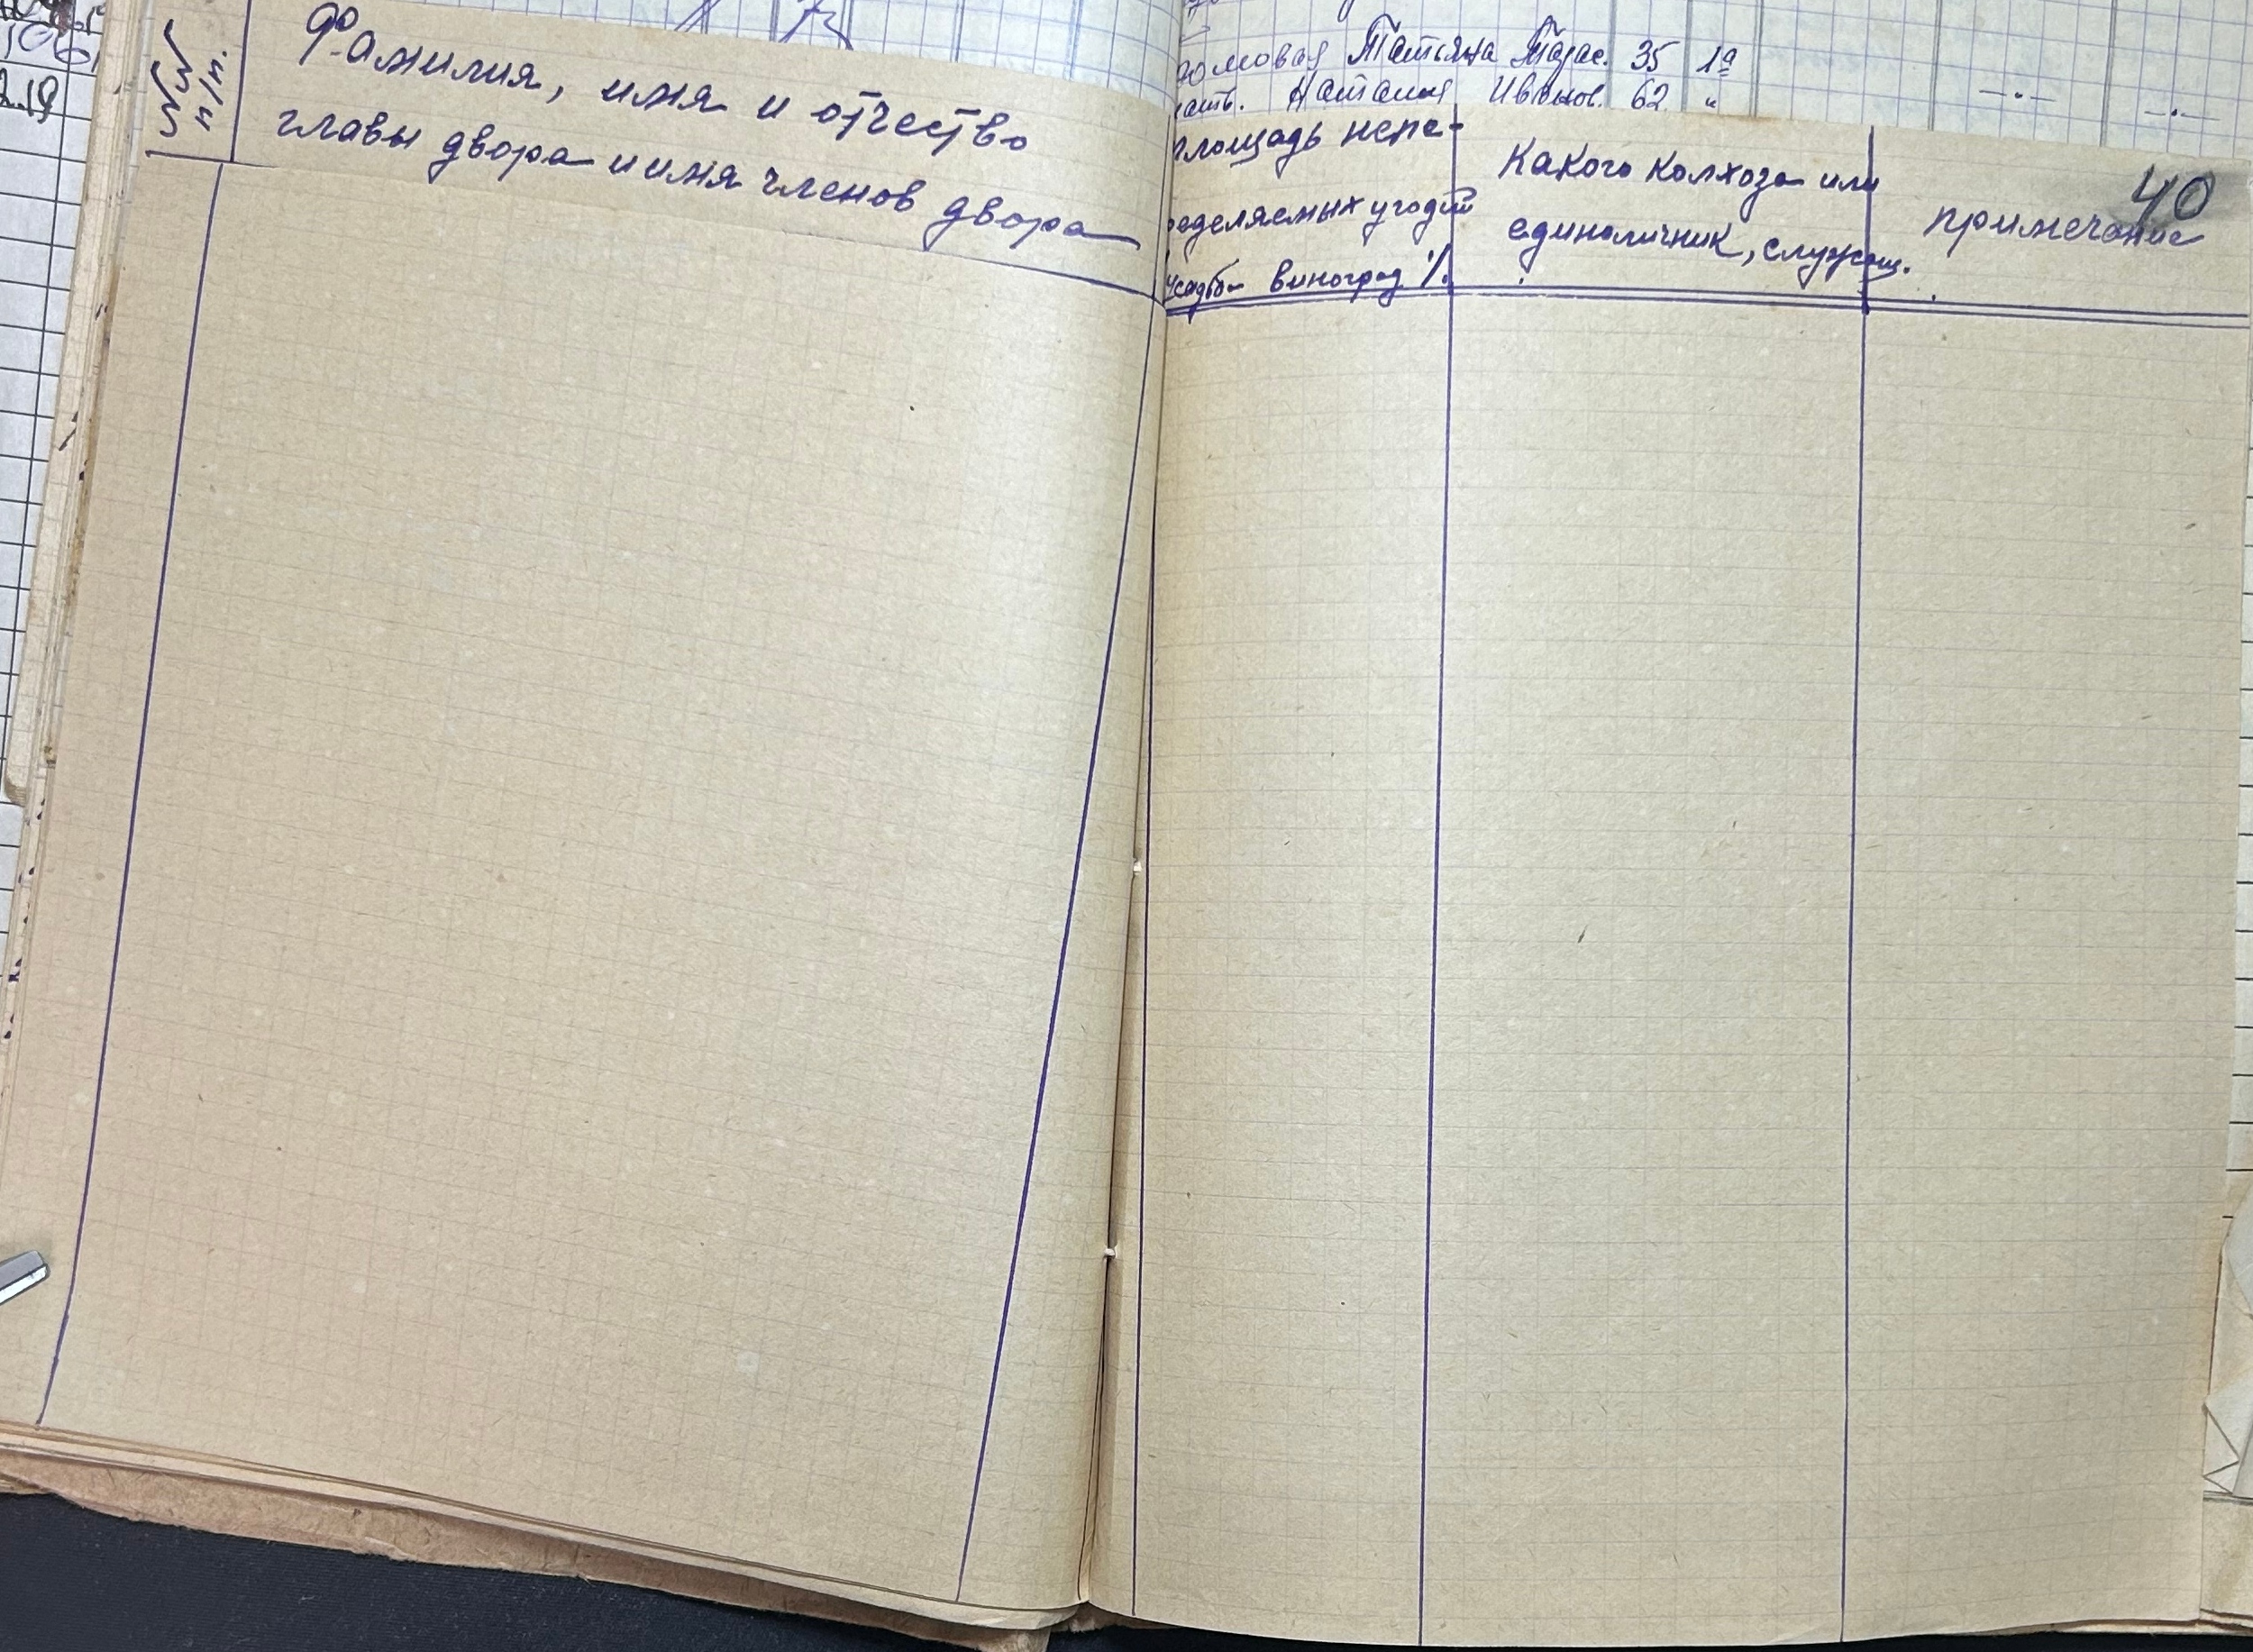 №№
п/п.
Фамилия, имя и отчество
главы двора и имя членов двора
Татьяна Тарас. 35 1а
Наталия Иванов. 62 "
40
площадь непе-
ределяемых угодий
усадьба виноград %
Какого колхоза или
единоличник, служащ.
примечание